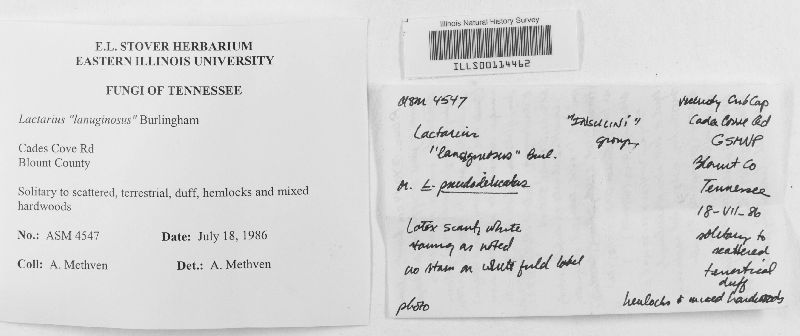 E.L. STOVER HERBARIUM
EASTERN ILLINOIS UNIVERSITY
FUNGI OF TENNESSEE
Lactarius "lanuginosus" Burlingham
Cades Cove Rd
Blount County
Solitary to scattered, terrestrial, duff, hemlocks and mixed
hardwoods
No.: ASM 4547 Date: July 18, 1986
Coll: A. Methven Det.: A. Methven
Illinois Natural History Survey
ILLS00114462
ASM 4547
Lactarius
"lanuginosus" Burl.
or L. pseudodelicatus
Latex scanty white
staining as noted
no stain on white field label
photo
"INSULINI"
group
Cades Cove Rd
GSMNP
Blount Co
Tennessee
18-VII-86
solitary to
scattered
terrestrial
duff
hemlocks & mixed hardwoods